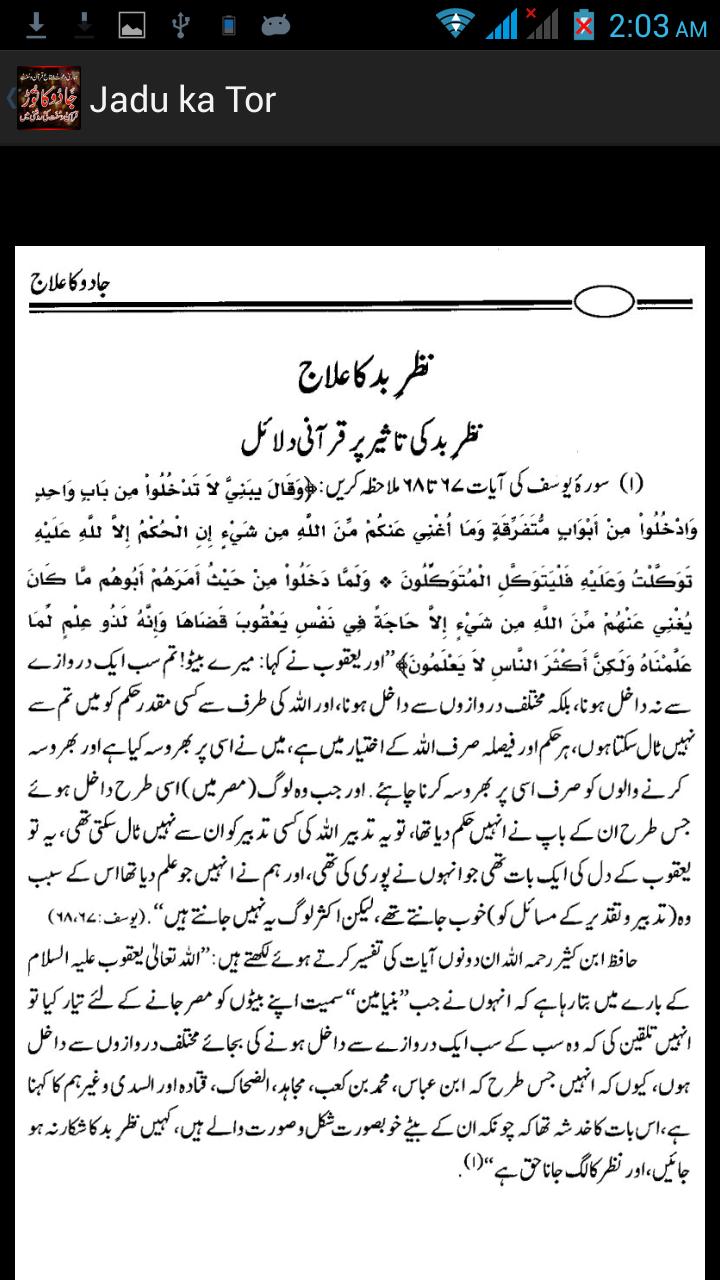 2:03 AM
Jadu ka Tor
جادو کا علاج
نظرِ بد کا علاج
نظرِ بد کی تاثیر پر قرآنی دلائل
(۱) سورۂ یوسف کی آیات ۶۷ تا ۶۸ ملاحظہ کریں: ﴿وَقَالَ يٰبَنِيَّ لاَ تَدْخُلُواْ مِن بَابٍ وَاحِدٍ
وَادْخُلُواْ مِنْ أَبْوَابٍ مُّتَفَرِّقَةٍ وَمَا أُغْنِي عَنكُمْ مِّنَ اللَّهِ مِن شَيْءٍ إِنِ الْحُكْمُ إِلاَّ للَّهِ عَلَيْهِ
تَوَكَّلْتُ وَعَلَيْهِ فَلْيَتَوَكَّلِ الْمُتَوَكِّلُونَ ❖ وَلَمَّا دَخَلُواْ مِنْ حَيْثُ أَمَرَهُمْ أَبُوهُم مَّا كَانَ
يُغْنِي عَنْهُمْ مِّنَ اللَّهِ مِن شَيْءٍ إِلاَّ حَاجَةً فِي نَفْسِ يَعْقُوبَ قَضَاهَا وَإِنَّهُ لَذُو عِلْمٍ لِّمَا
عَلَّمْنَاهُ وَلَكِنَّ أَكْثَرَ النَّاسِ لاَ يَعْلَمُونَ﴾ ”اور یعقوب نے کہا: میرے بیٹو! تم سب ایک دروازے
سے نہ داخل ہونا، بلکہ مختلف دروازوں سے داخل ہونا، اور اللہ کی طرف سے کسی مقدر حکم کو میں تم سے
نہیں ٹال سکتا ہوں، ہر حکم اور فیصلہ صرف اللہ کے اختیار میں ہے، میں نے اسی پر بھروسہ کیا ہے اور بھروسہ
کرنے والوں کو صرف اسی پر بھروسہ کرنا چاہئے۔ اور جب وہ لوگ (مصر میں) اسی طرح داخل ہوئے
جس طرح ان کے باپ نے انہیں حکم دیا تھا، تو یہ تدبیر اللہ کی کسی تدبیر کو ان سے نہیں ٹال سکتی تھی، یہ تو
یعقوب کے دل کی ایک بات تھی جو انہوں نے پوری کی تھی، اور ہم نے انہیں جو علم دیا تھا اس کے سبب
وہ (تدبیر و تقدیر کے مسائل کو) خوب جانتے تھے، لیکن اکثر لوگ یہ نہیں جانتے ہیں“۔ (یوسف: ۶۷،۶۸)
حافظ ابن کثیر رحمہ اللہ ان دونوں آیات کی تفسیر کرتے ہوئے لکھتے ہیں: ”اللہ تعالیٰ یعقوب علیہ السلام
کے بارے میں بتا رہا ہے کہ انہوں نے جب ”بنیامین“ سمیت اپنے بیٹوں کو مصر جانے کے لئے تیار کیا تو
انہیں تلقین کی کہ وہ سب کے سب ایک دروازے سے داخل ہونے کی بجائے مختلف دروازوں سے داخل
ہوں، کیوں کہ انہیں جس طرح کہ ابن عباس، محمد بن کعب، مجاہد، الضحاک، قتادہ اور السدی وغیرہم کا کہنا
ہے، اس بات کا خدشہ تھا کہ چونکہ ان کے بیٹے خوبصورت شکل و صورت والے ہیں، کہیں نظرِ بد کا شکار نہ ہو
جائیں، اور نظر کا لگ جانا حق ہے“(۱)۔